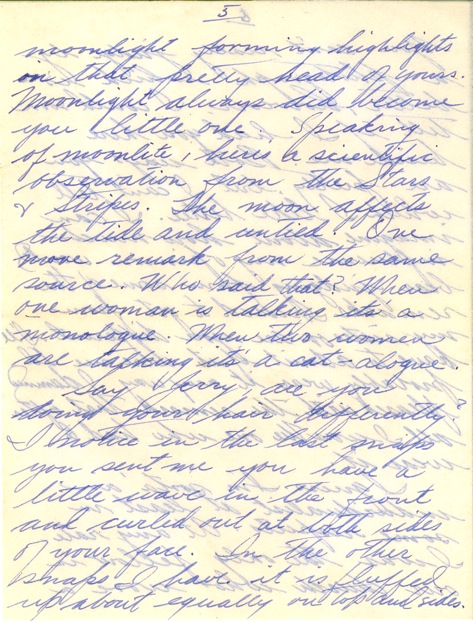 5
moonlight forming highlights
on that pretty head of yours.
Moonlight always did become
you little one. Speaking
of moonlite, here's a scientific
observation from the Stars
& Stripes. The moon affects
the tide and untied. One
more remark from the same
source. Who said that? When
one woman is talking it's a
monologue. When two women
are talking it's a cat-alogue.
Say Jerry are you
doing your hair differently?
I notice in the last snaps
you sent me you have a
little wave in the front
and curled out at both sides
of your face. In the other
snaps I have it is fluffed
up about equally on top and sides.